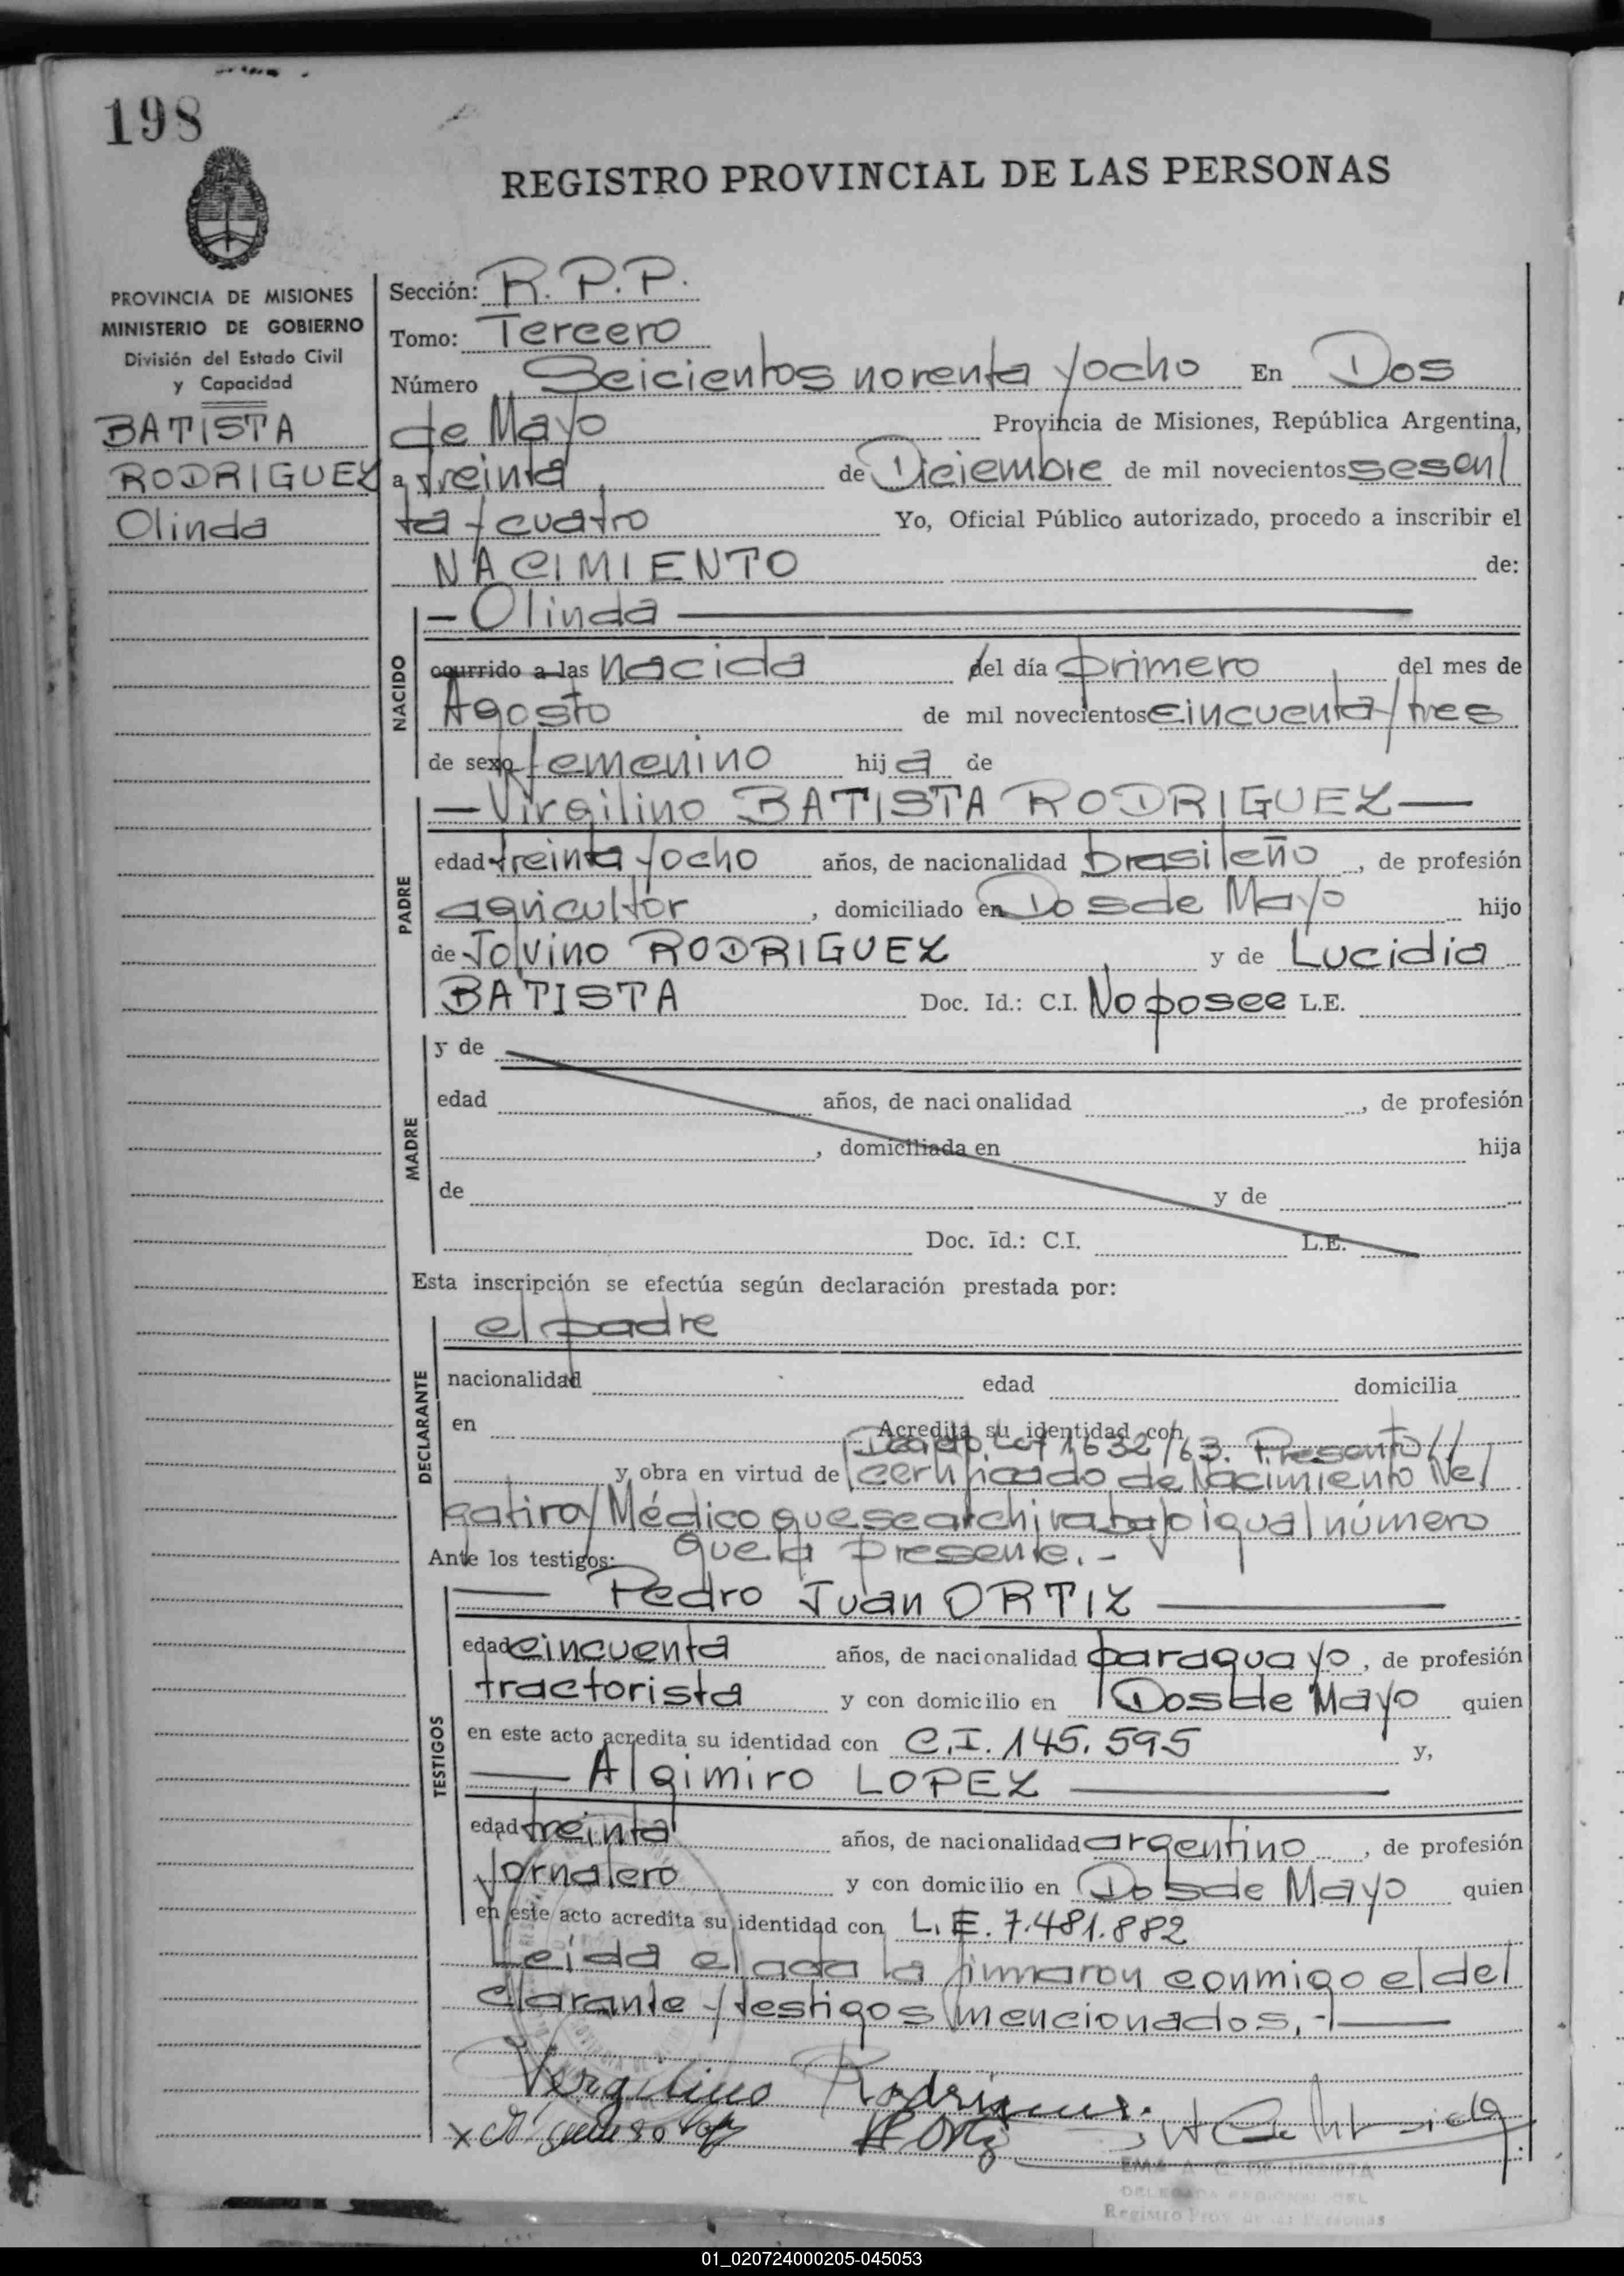 198
REGISTRO PROVINCIAL DE LAS PERSONAS
PROVINCIA DE MISIONES
MINISTERIO DE GOBIERNO
División del Estado Civil
y Capacidad
BATISTA
RODRIGUEZ
Olinda
Sección: R.P.P.
Tomo: Tercero
Número Seicientos noventa y ocho En Dos
de Mayo Provincia de Misiones, República Argentina,
a treinta de Diciembre de mil novecientos sesen/
ta y cuatro Yo, Oficial Público autorizado, procedo a inscribir el
NACIMIENTO de:
— Olinda —
NACIDO
ocurrido a las nacida del día primero del mes de
Agosto de mil novecientos cincuenta y tres
de sexo femenino hija de
PADRE
— Virgilino BATISTA RODRIGUEZ —
edad treinta y ocho años, de nacionalidad brasileño, de profesión
agricultor, domiciliado en Dos de Mayo hijo
de Jolvino RODRIGUEZ y de Lucidia
BATISTA Doc. Id.: C.I. No posee L.E.
MADRE
y de
edad años, de nacionalidad, de profesión
, domiciliada en hija
de y de
Doc. Id.: C.I. L.E.
Esta inscripción se efectúa según declaración prestada por:
DECLARANTE
el padre
nacionalidad edad domicilia
en Acredita su identidad con
Decreto Ley 1632/63. Presentó//
y obra en virtud de certificado de Nacimiento Ne/
gativo y Médico que se archiva bajo igual número
Ante los testigos: que la presente.-
TESTIGOS
— Pedro Juan ORTIZ —
edad cincuenta años, de nacionalidad paraguayo, de profesión
tractorista y con domicilio en Dos de Mayo quien
en este acto acredita su identidad con C.I. 145.595 y,
— Algimiro LOPEZ —
edad treinta años, de nacionalidad argentino, de profesión
jornalero y con domicilio en Dos de Mayo quien
en este acto acredita su identidad con L.E. 7.481.882
Leída el acta la firmaron conmigo el de/
clarante y testigos mencionados.-
Vergilino Rodrigues
DELEGADA REGIONAL DEL
Registro Prov. de las Personas
01_020724000205-045053